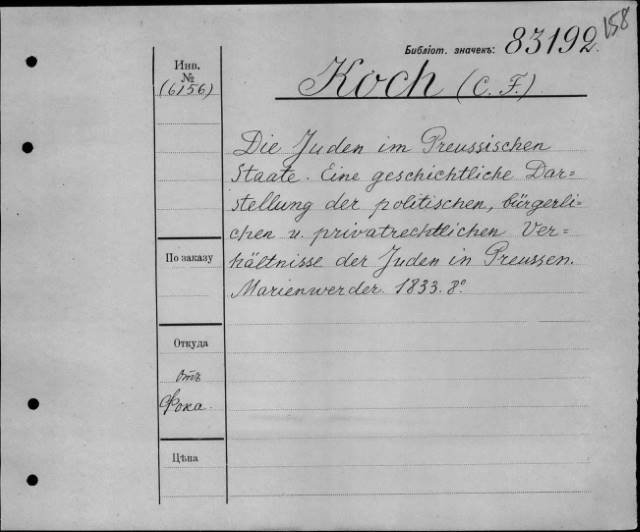 158
Библіот. значекъ: 83192.
Инв.
№
(6156)
Koch (C. F.)
Die Juden im Preussischen
Staate. Eine geschichtliche Dar=
stellung der politischen, bürgerli=
chen u. privatrechtlichen Ver=
hältnisse der Juden in Preussen.
Marienwerder. 1833. 8º.
По заказу
Откуда
отъ
Фока.
Цѣна